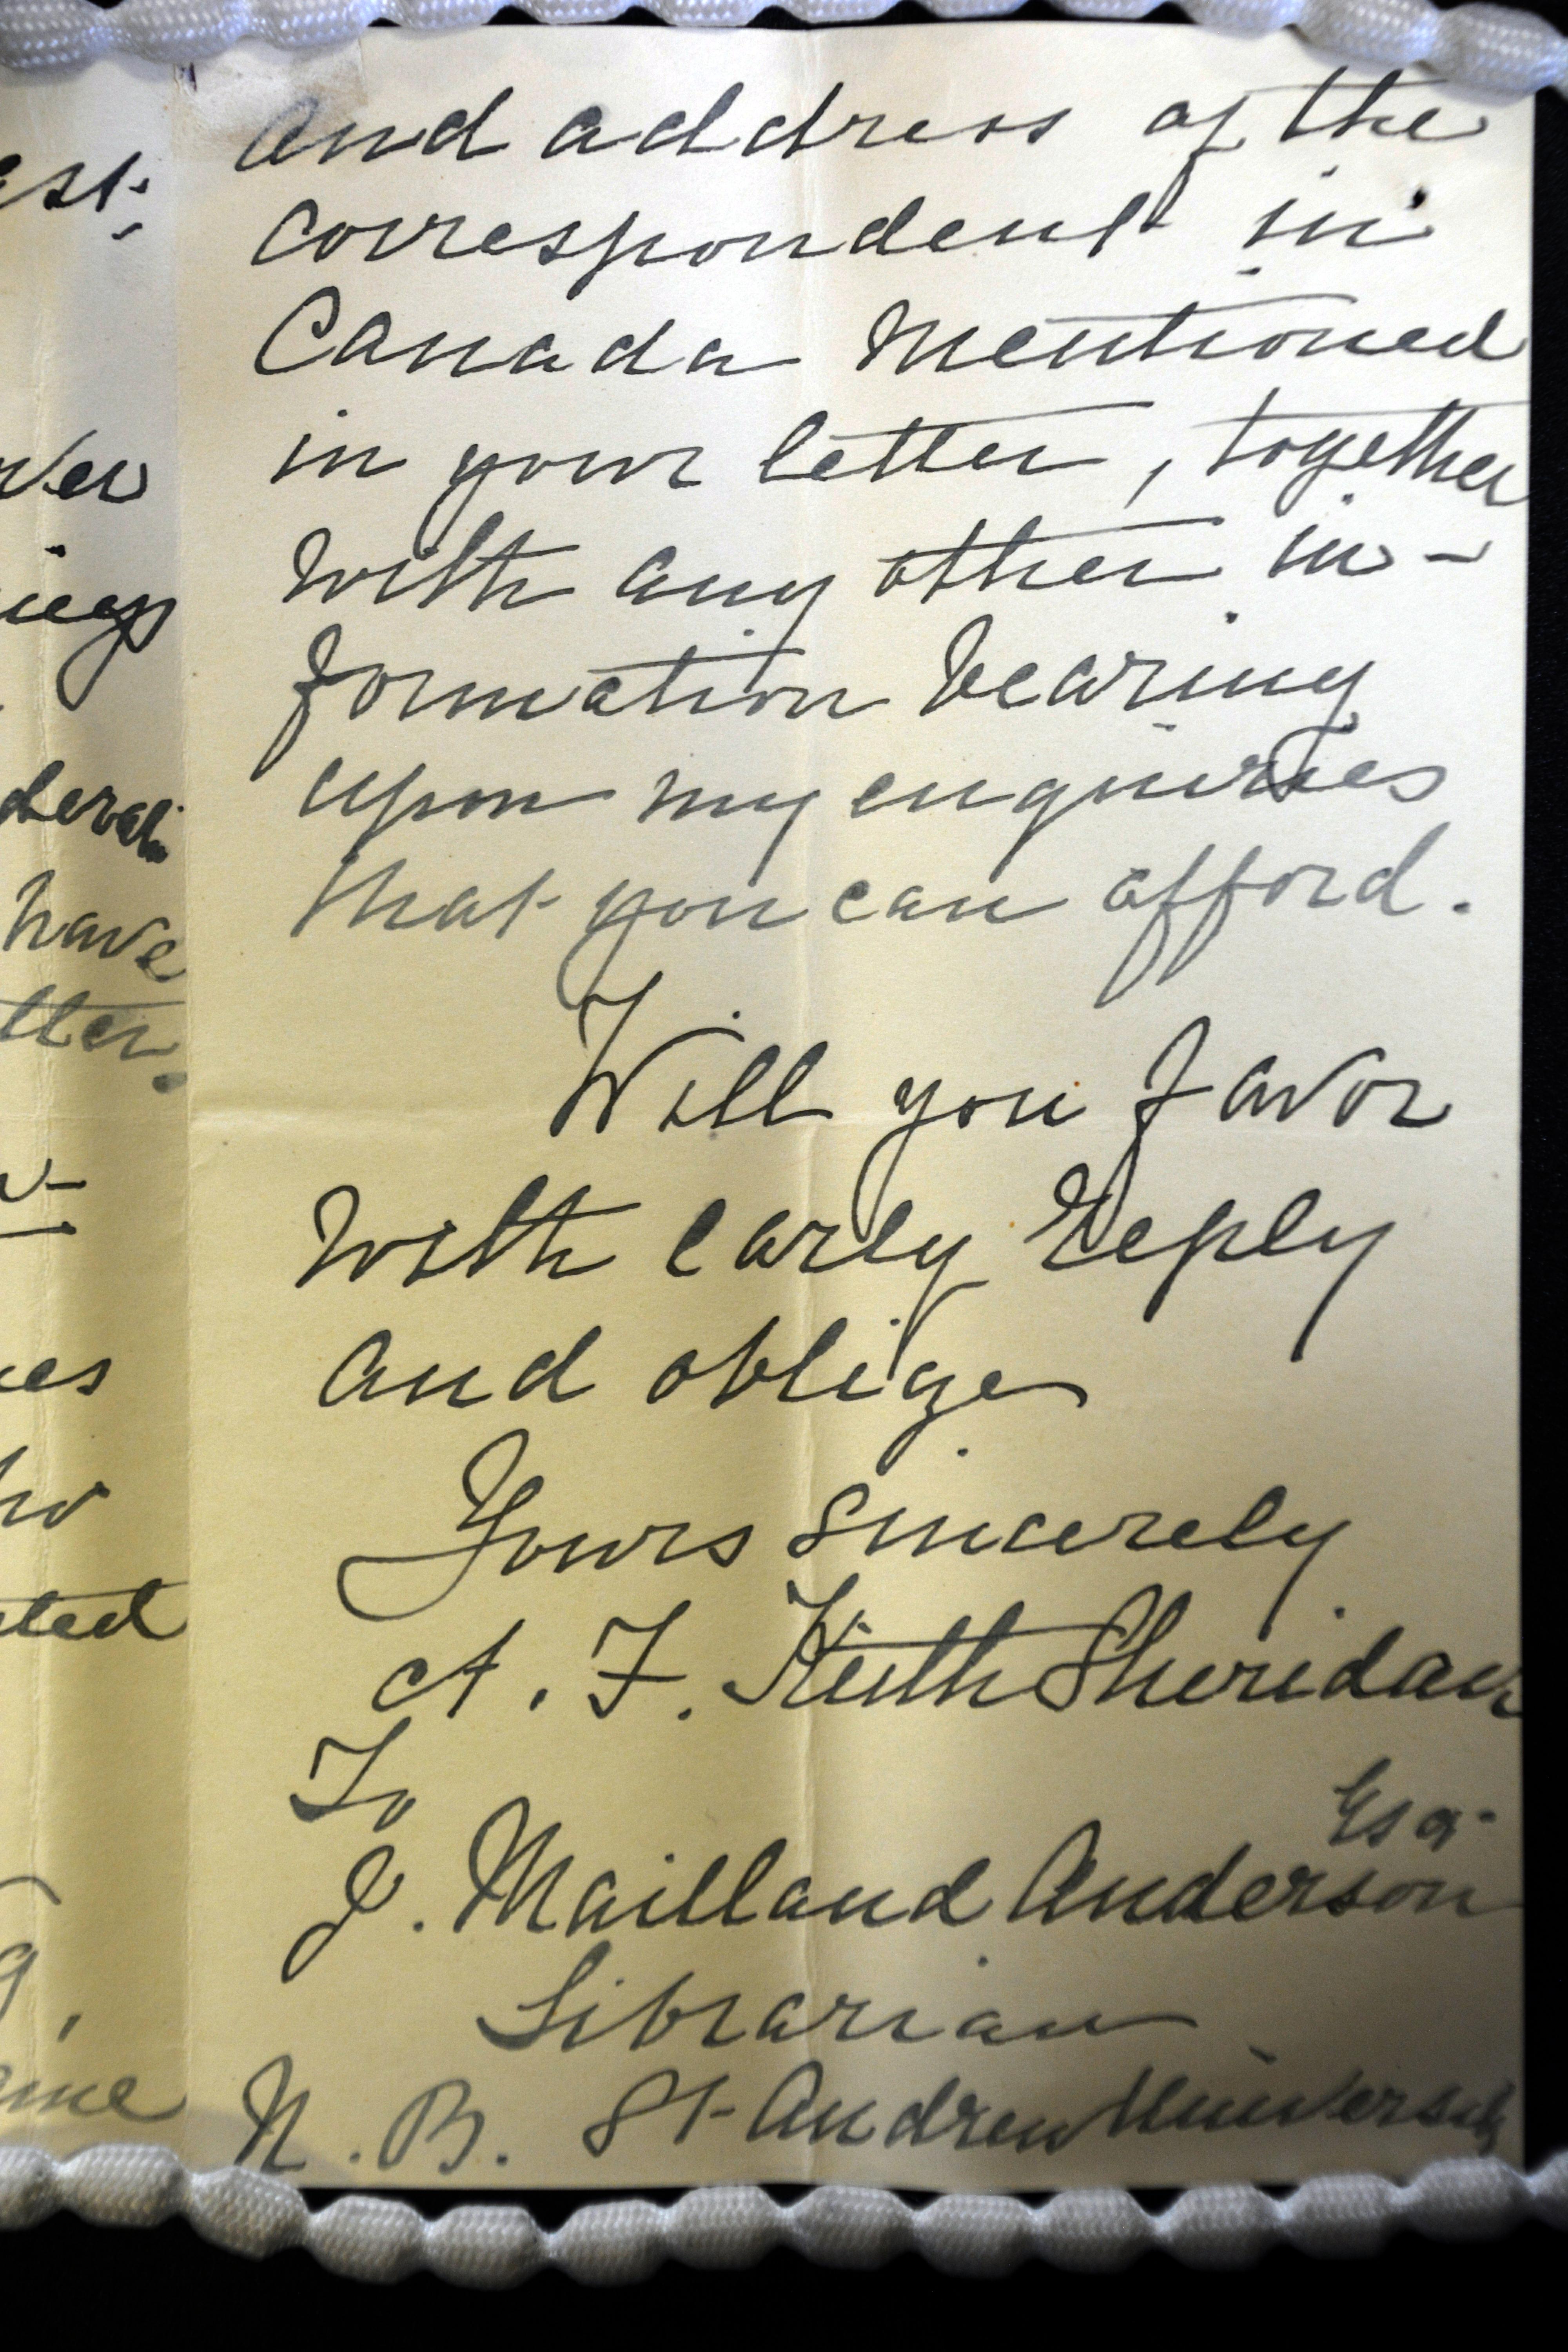 and address of the
correspondent in
Canada mentioned
in your letter, together
with any other in-
formation bearing
upon my enquiries
that you can afford.
Will you favor
with early reply
and oblige
Yours sincerely
A. F. Keith Sheridan
To
Esq.
J. Maitland Anderson
Librarian
N. B. St Andrew University
have